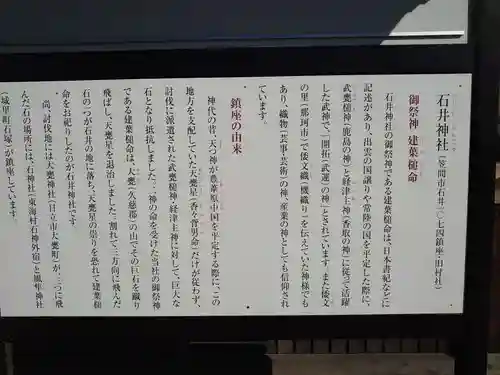 石井神社（笠間市石井一〇七四鎮座・旧村社）
御祭神 建葉槌命
石井神社の御祭神である建葉槌命は、日本書紀などに
記述があり、出雲の国譲りや常陸の国を平定した際に、
武甕槌神（鹿島の神）と経津主神（香取の神）に従って活躍
した武神で、「開拓（武運）の神」とされています。また倭文
の里（那珂市）で倭文織（機織り）を伝えていた神様でも
あり、織物（芸事・芸術）の神、産業の神としても信仰され
ています。
鎮座の由来
神代の昔、天つ神が豊葦原中国を平定する際に、この
地方を支配していた天甕星（香々背男命）だけが従わず、
討伐に派遣された武甕槌神・経津主神に対して、巨大な
石となり抵抗しました…神の命を受けた当社の御祭神
である建葉槌命は、大甕（久慈郡）の山でその巨石を蹴り
飛ばし、天甕星を退治しました…割れて三方向に飛んだ
石の一つが石井の地に落ち、天甕星の祟りを恐れて建葉槌
命をお祀りしたのが石井神社です。
尚、討伐地には大甕神社（日立市大甕町）が、三つに飛
んだ石の場所には、石神社（東海村石神外宿）と風隼神社
（城里町石塚）が鎮座しています。